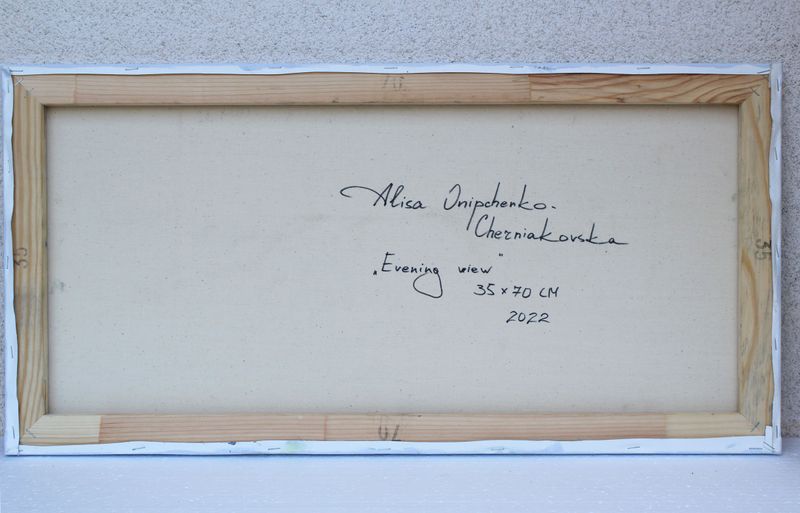 70
Alisa Onipchenko-
Cherniakovska
„Evening view"
35 x 70 CM
2022
35
35
70